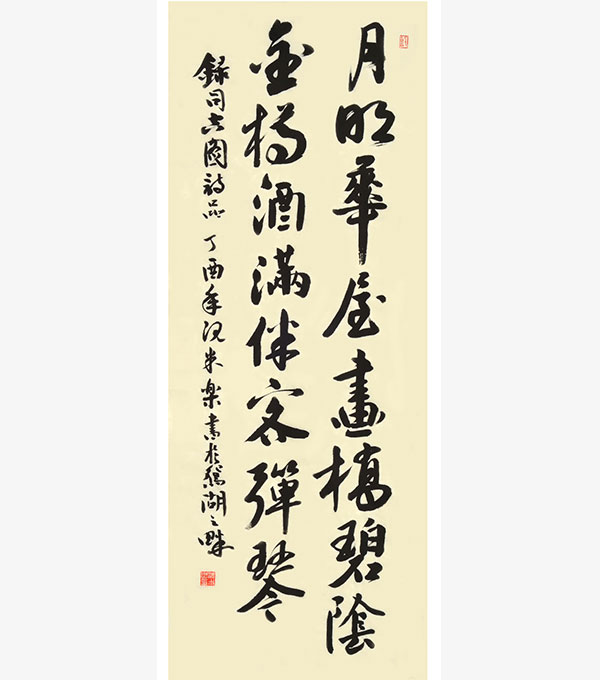 月明華屋畫橋碧陰
金樽酒滿伴客彈琴
錄司空圖詩品 丁酉年米楽書於湖之畔